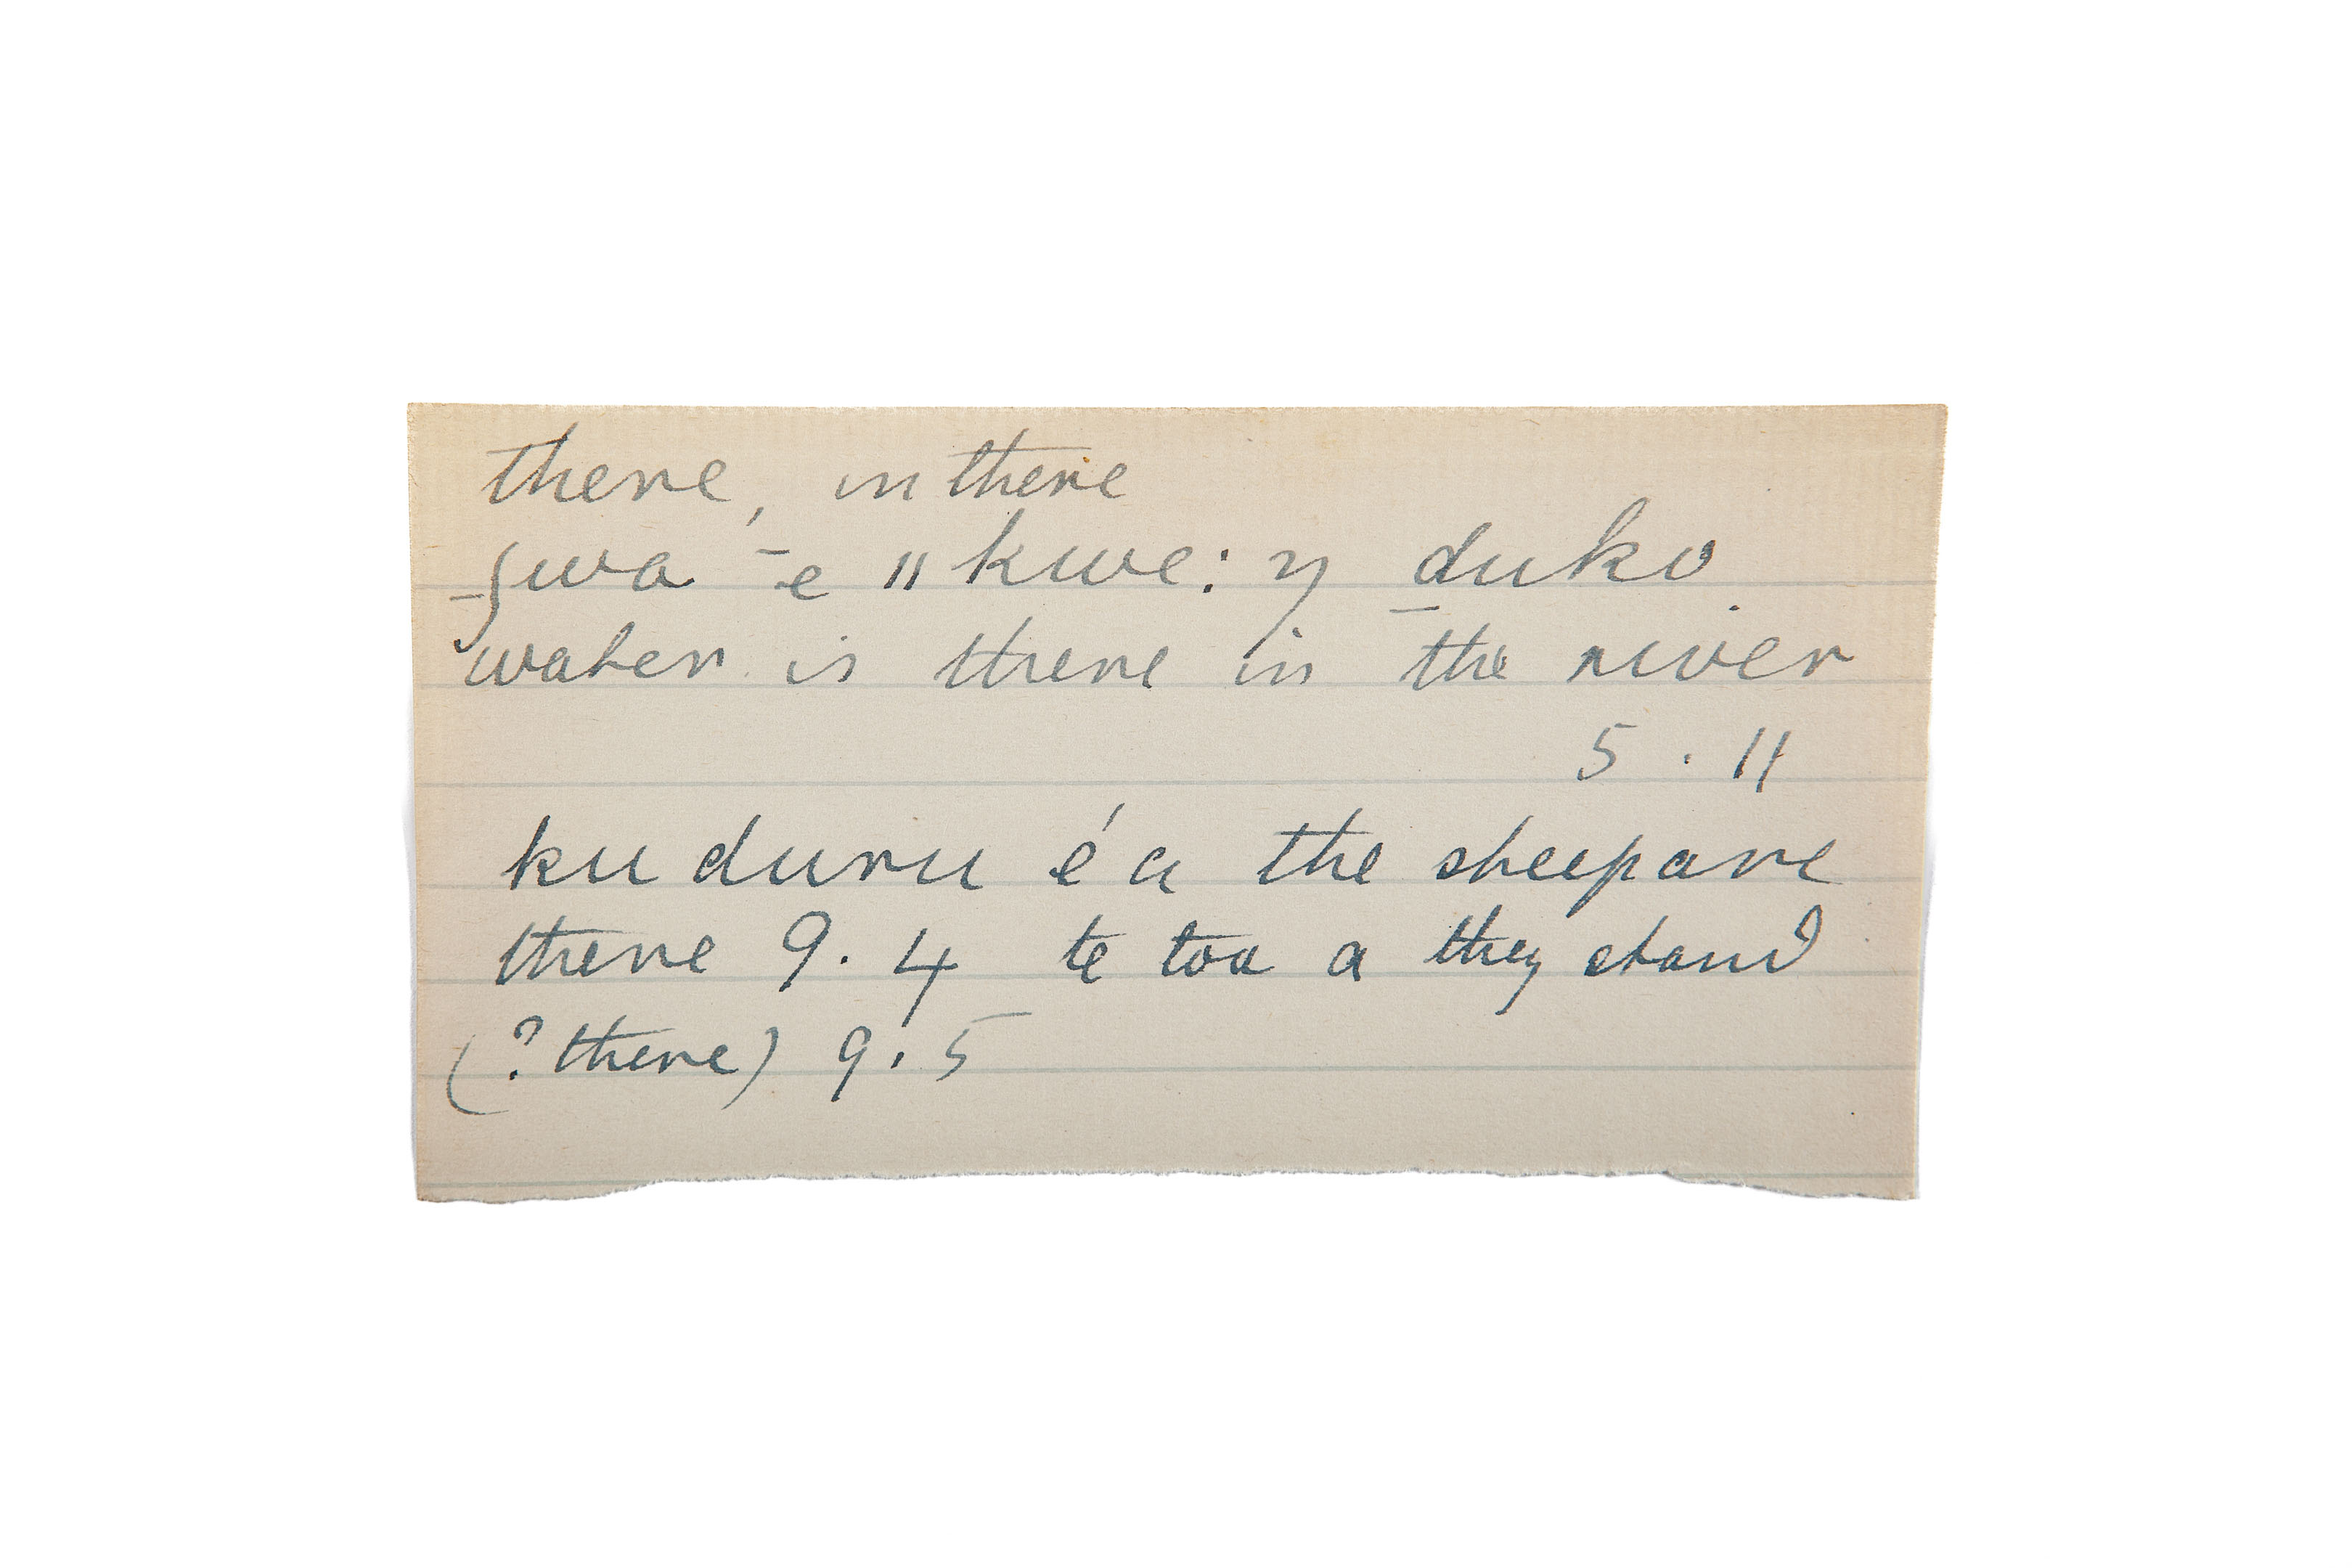 there, in there
ʃwa ¯e ǁkwe:ŋ duko
water is there in the river
5 . 11
ku duru éa the sheep are
there 9. 4 te toa a they stand
(? there) 9. 5